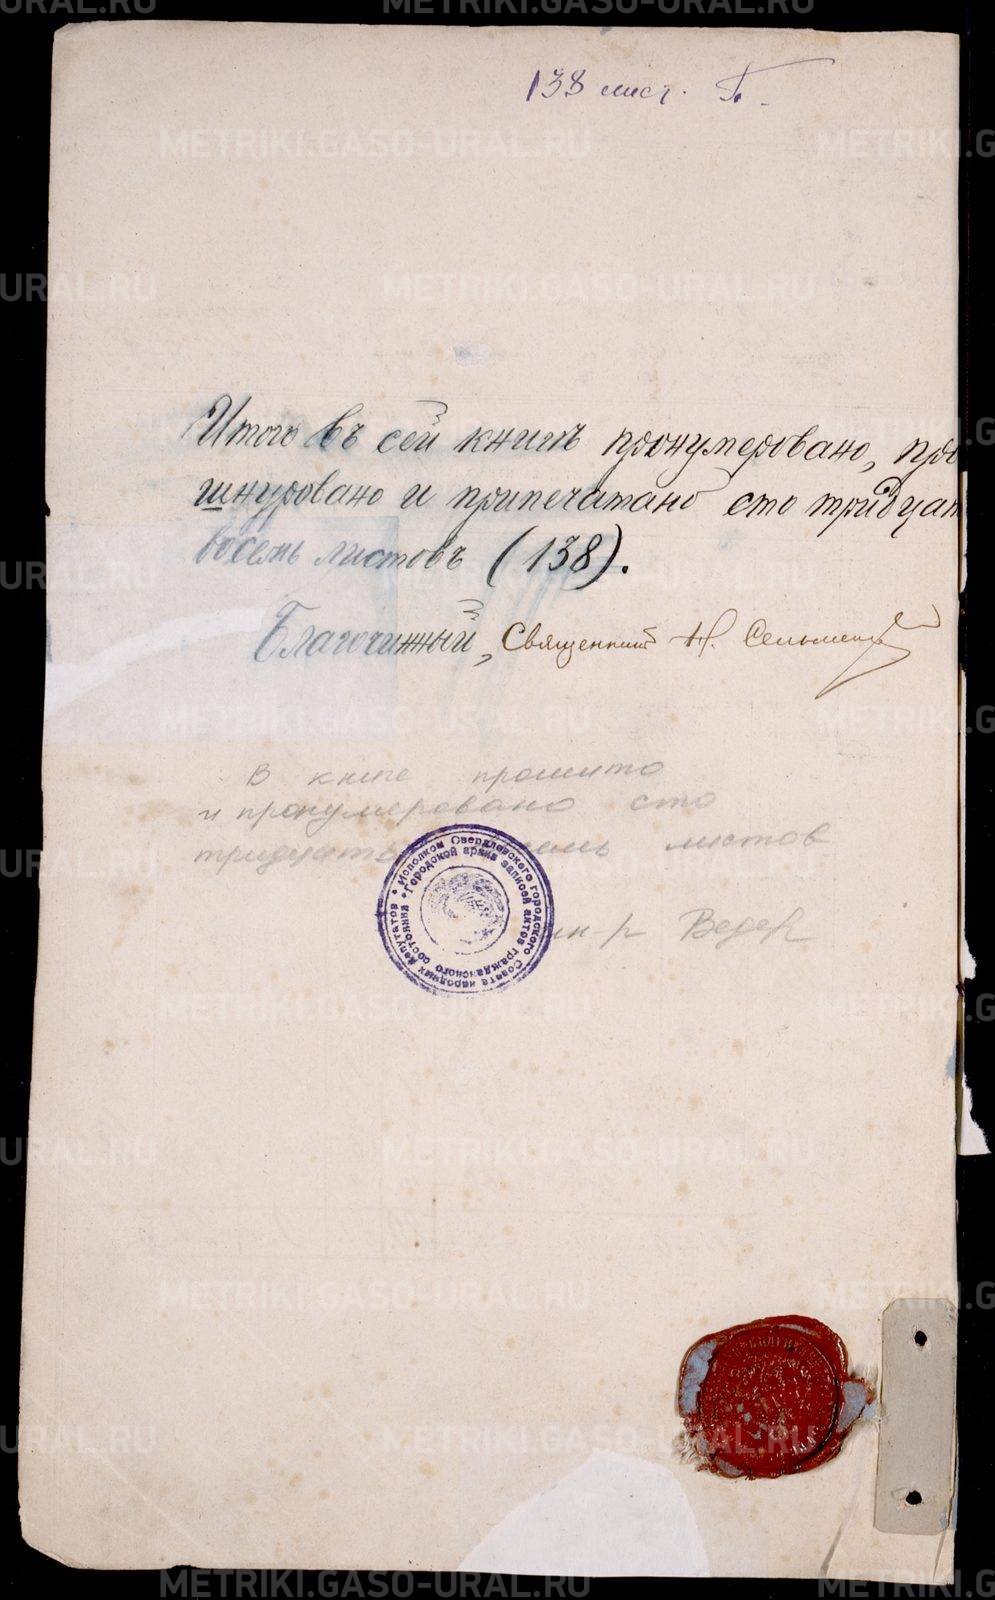 138 лист.
Итого въ сей книгѣ пронумеровано, про
шнуровано и припечатано сто тридцат
восемь листовъ (138).
Благочинный, Священникъ Н.
В книге прошито
и пронумеровано сто
тридцать листов
Исполком Свердловского городского Совета народных депутатов
Городской архив записей актов гражданского состояния
METRIKI.GASO-URAL.RU